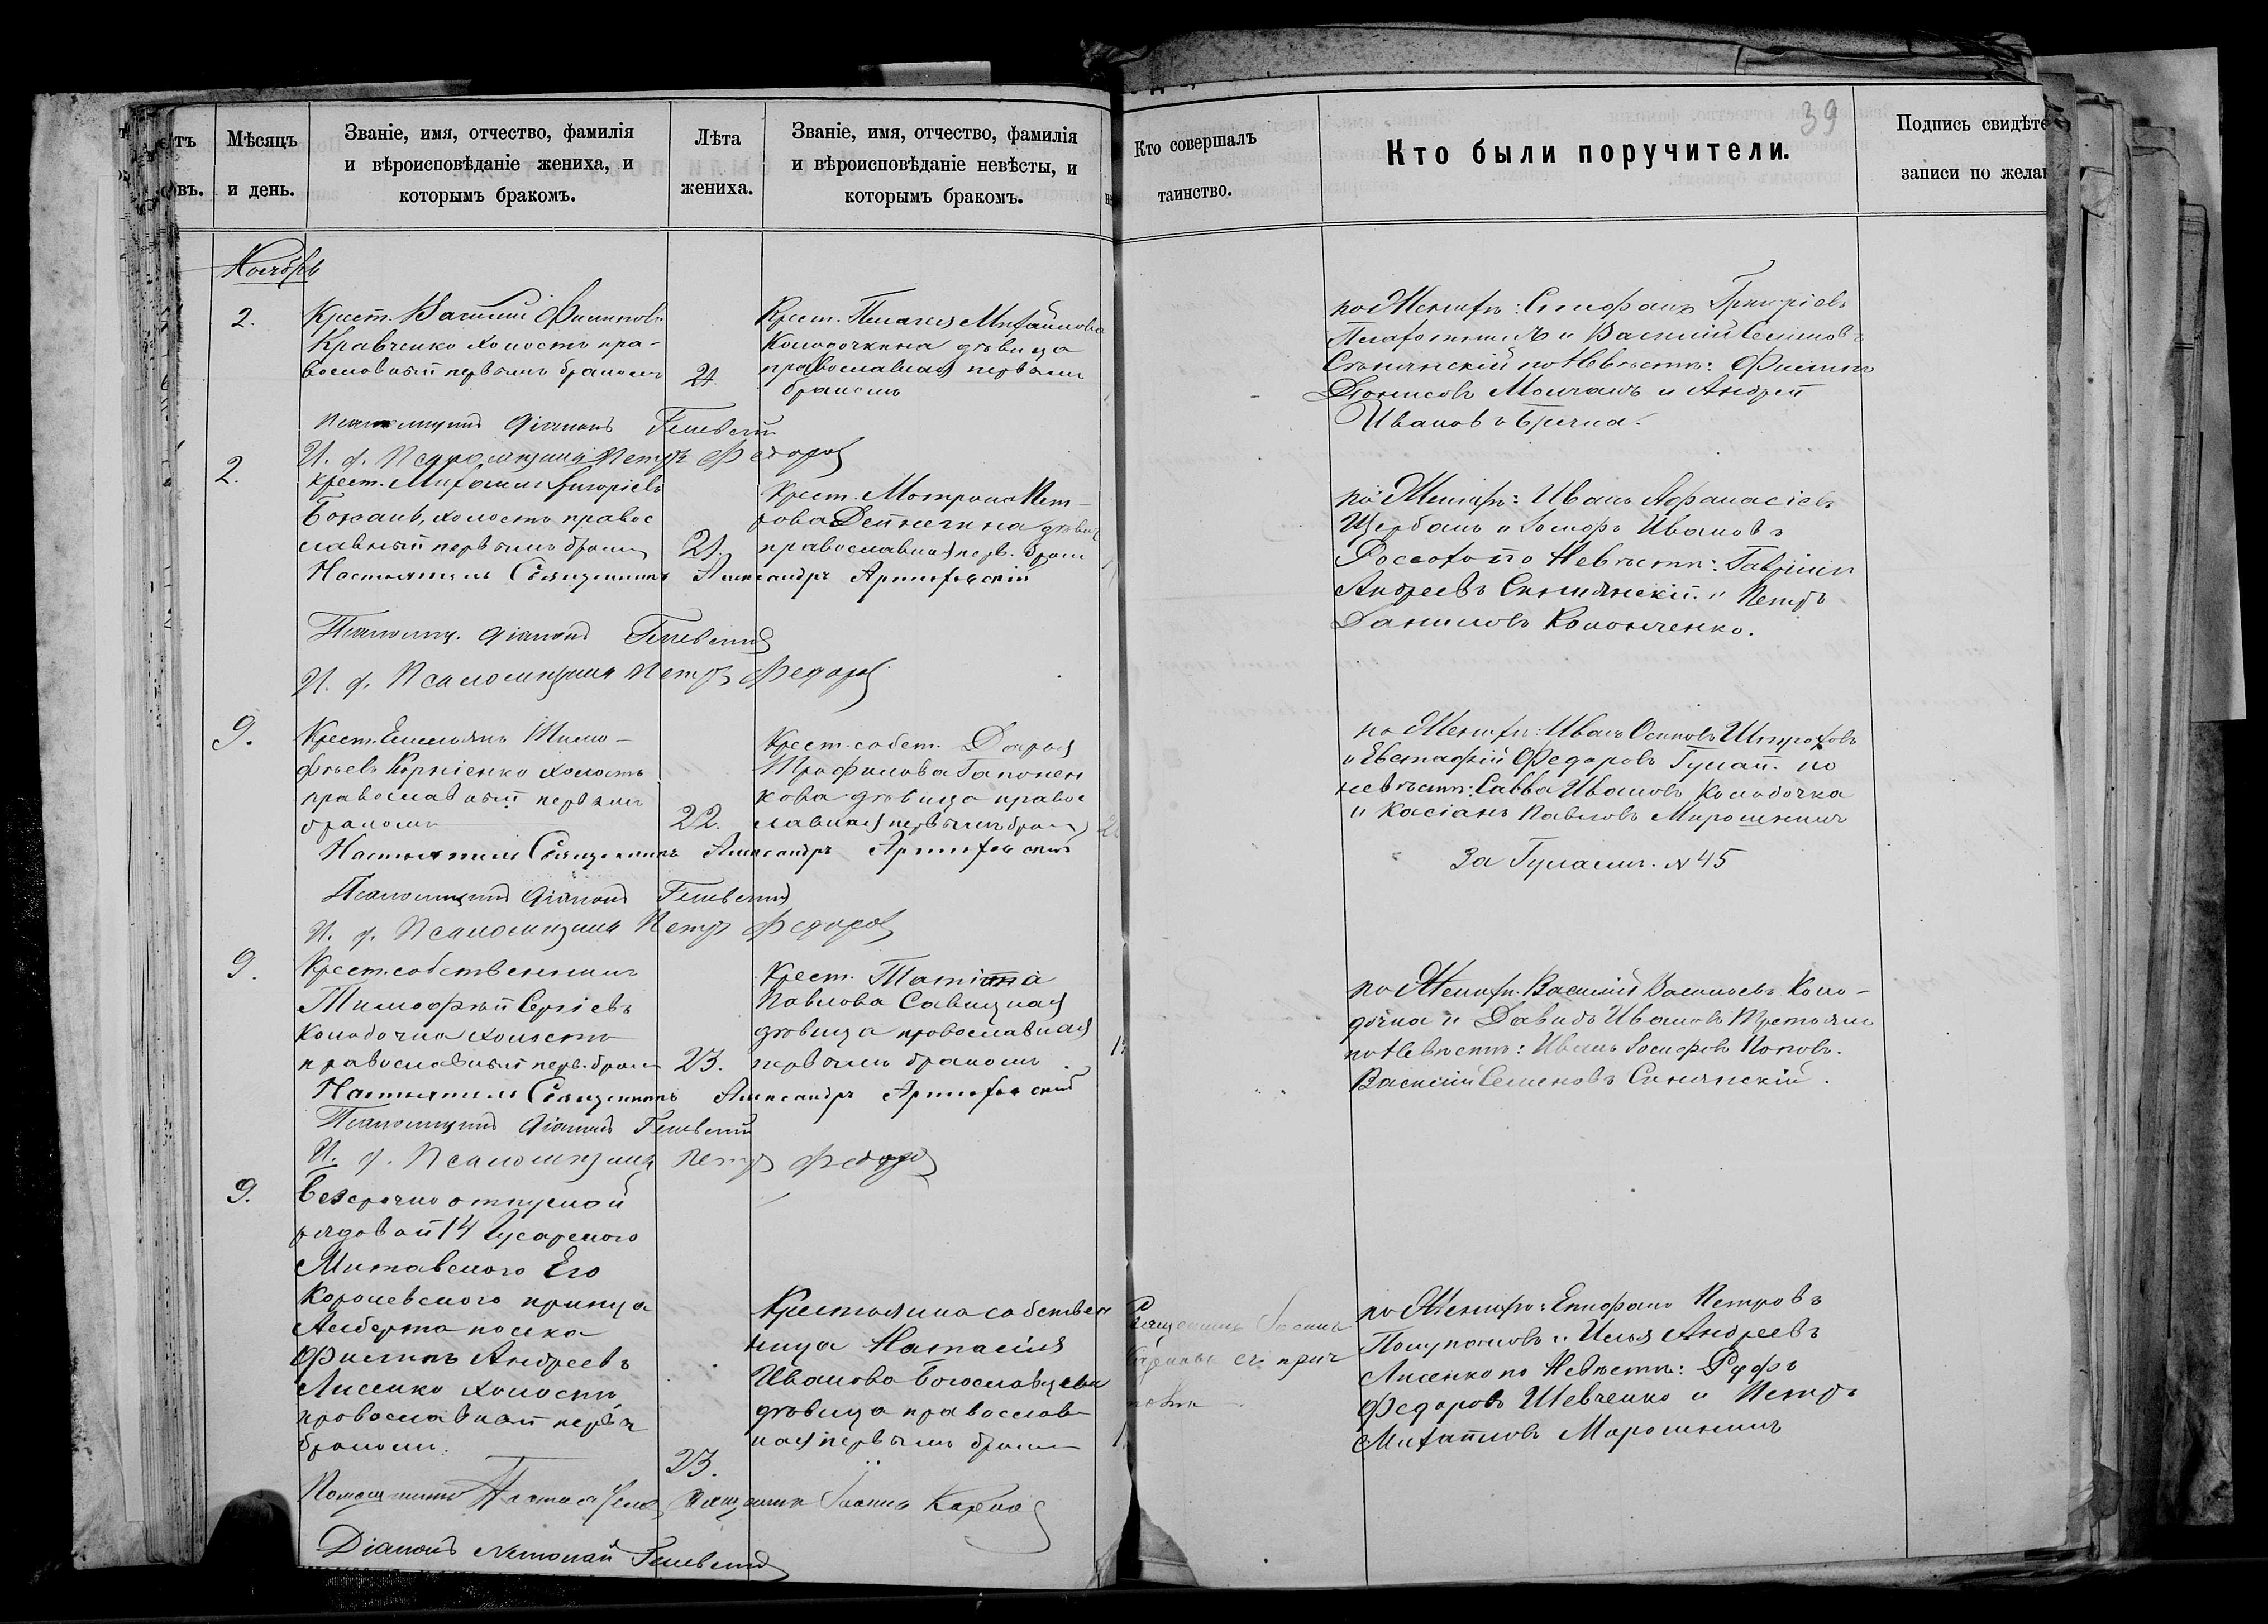 Мѣсяцъ
и день.
Званіе, имя, отчество, фамилія
и вѣроисповѣданіе жениха, и
которымъ бракомъ.
Лѣта
жениха.
Званіе, имя, отчество, фамилія
и вѣроисповѣданіе невѣсты, и
которымъ бракомъ.
Кто совершалъ
таинство.
Кто были поручители.
39
Подпись свидѣте
записи по жела
Ноябрь
2.
Крест. Василій Филиповъ
Кравченко холостъ пра-
вославный первымъ бракомъ
21.
Крест. Пелагея Михайлова
Колодочкина дѣвица
православная первымъ
бракомъ
по Женихѣ: Стефанъ Григоріевъ
и Василій Семеновъ
Синянскій по Невѣстѣ: Филипъ
Діонисовъ Молчанъ и Андрей
Ивановъ
Псаломщикъ Діаконъ
И. д. Псаломщика Петръ Федоровъ
2.
Крест. Михаилъ Григоріевъ
Божанъ, холостъ правос
славный первымъ бракомъ
21.
Крест. Матрона Пет-
рова дѣвица
православная перв. брак
по Женихѣ: Иванъ Афанасіевъ
Щербань и Іосифъ Ивановъ
Россоха по Невѣстѣ: Гавріилъ
Андреевъ Синянскій и Петръ
Даниловъ Кононченко.
Настоятель Священникъ Александръ
Псаломщ. Діаконъ
И. д. Псаломщика Петръ Федоровъ
9.
Крест. Емельянъ Тимо-
фѣевъ Корніенко холостъ
православный первымъ
бракомъ
22.
Крест. собст. Дарья
Трофимова Гапонен
кова дѣвица правос
лавная первымъ брак
по Женихѣ: Иванъ Осиповъ
и Евстафій Федоровъ Гулай. по
невѣстѣ: Савва Ивановъ Колодочка
и Касіанъ Павловъ Мирошникъ
За Гулаемъ. №45
Настоятель Священникъ Александръ
Псаломщикъ Діаконъ
И. д. Псаломщика Петръ Федоровъ
9.
Крест. собственникъ
Тимофѣй Сергіевъ
Колодочка холостъ
православный перв. брак
23.
Крест. Татіана
Павлова Савицкая
дѣвица православная
первымъ бракомъ
по Женихѣ: Василій Васильевъ Коло-
дочка и Давидъ Ивановъ Третьякъ
по Невѣстѣ: Иванъ Іосифовъ Поповъ.
Василій Семеновъ Синянскій.
Настоятель Священникъ Александръ
Псаломщикъ Діаконъ
И. д. Псаломщика Петръ Федоровъ
9.
Безсрочно отпускной
рядовой 14 Гусарского
Митавского Его
Королевского принца
Альберта полка
Филипъ Андреевъ
Лисенко холостъ
православный первы
бракомъ.
23.
Крестьянка собствен
ница Наталія
Иванова Богославцева
дѣвица православ
ная первымъ бракомъ
Священникъ Іоаннъ
Карповъ съ прич
томъ
по Женихѣ: Епифанъ Петровъ
и Илья Андреевъ
Лисенко по Невѣстѣ: Руфъ
Федоровъ Шевченко и Петръ
Михайловъ Мирошникъ
Помощникъ Настоятеля Священникъ Іоаннъ Карповъ
Діаконъ